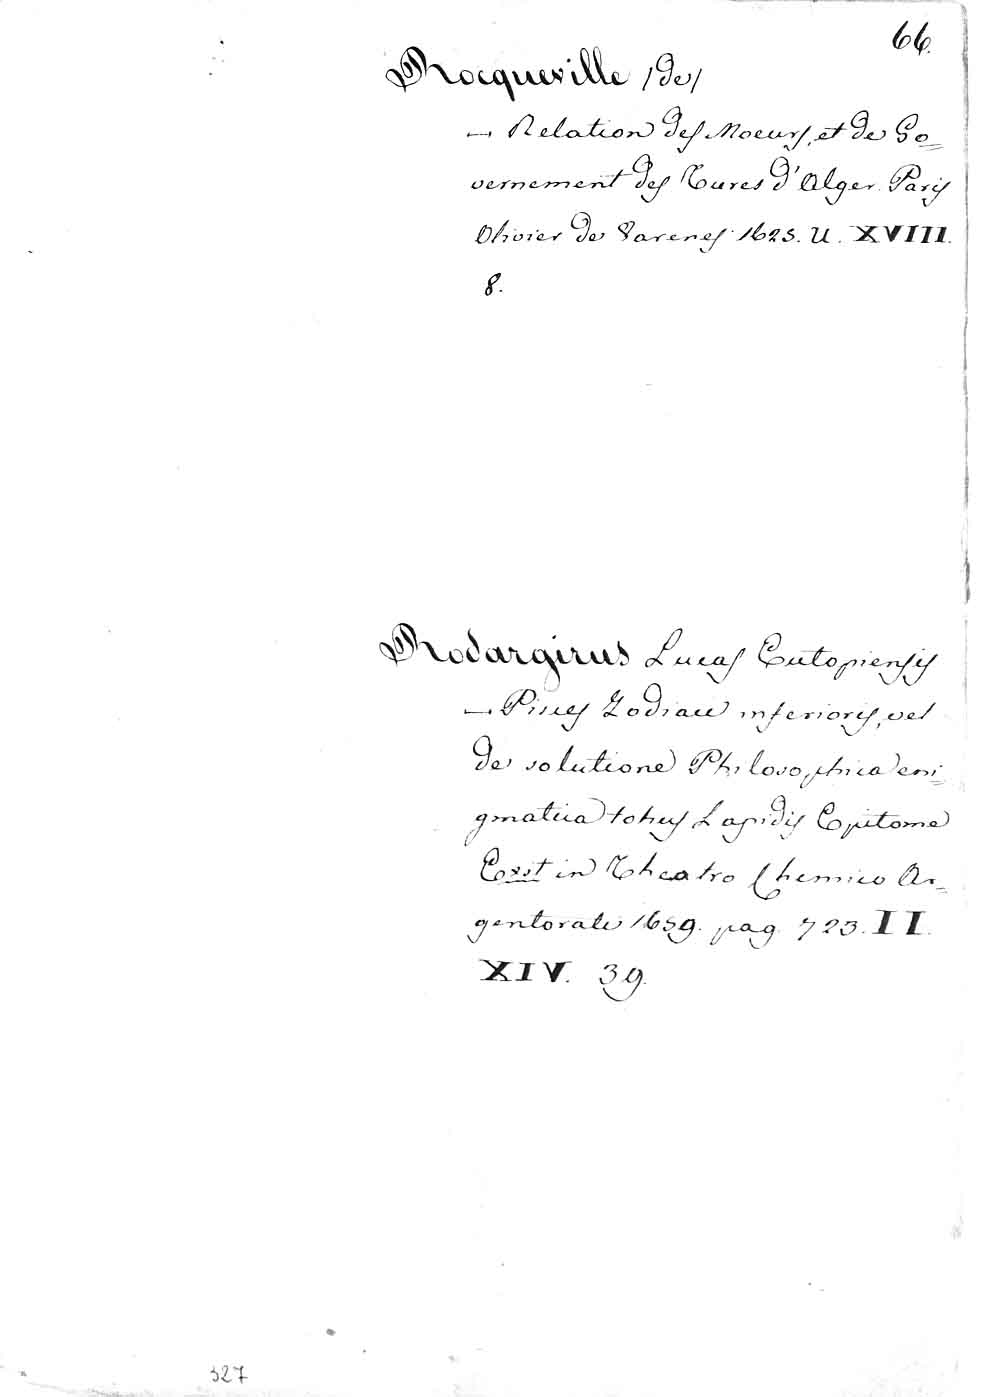 66.
Rocqueville (de)
— Relation des Moeurs, et de Go=
vernement des Turcs d'Alger. Paris
Olivier de Varenes 1623. U. XVIII.
8.
Rodargirus Lucas Eutopiensis
— Pisces Zodiaci inferioris, vel
de solutione Philosophica eni=
gmatica totius Lapidis Epitome
Exst in Theatro Chemico Ar=
gentorati 1659. pag. 723. II.
XIV. 39.
327